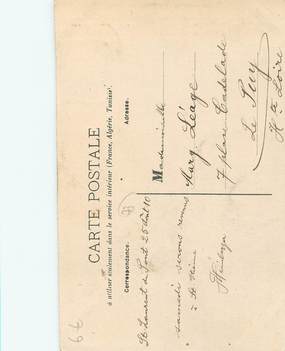 CARTE POSTALE
à utiliser seulement dans le service intérieur (France, Algérie, Tunisie)
Correspondance.
Adresse.
St Laurent du Pont 25 Août 10
samedi serons
à St
Mademoiselle
Marg Léage
7 place Cadelade
Le Puy
Hte Loire